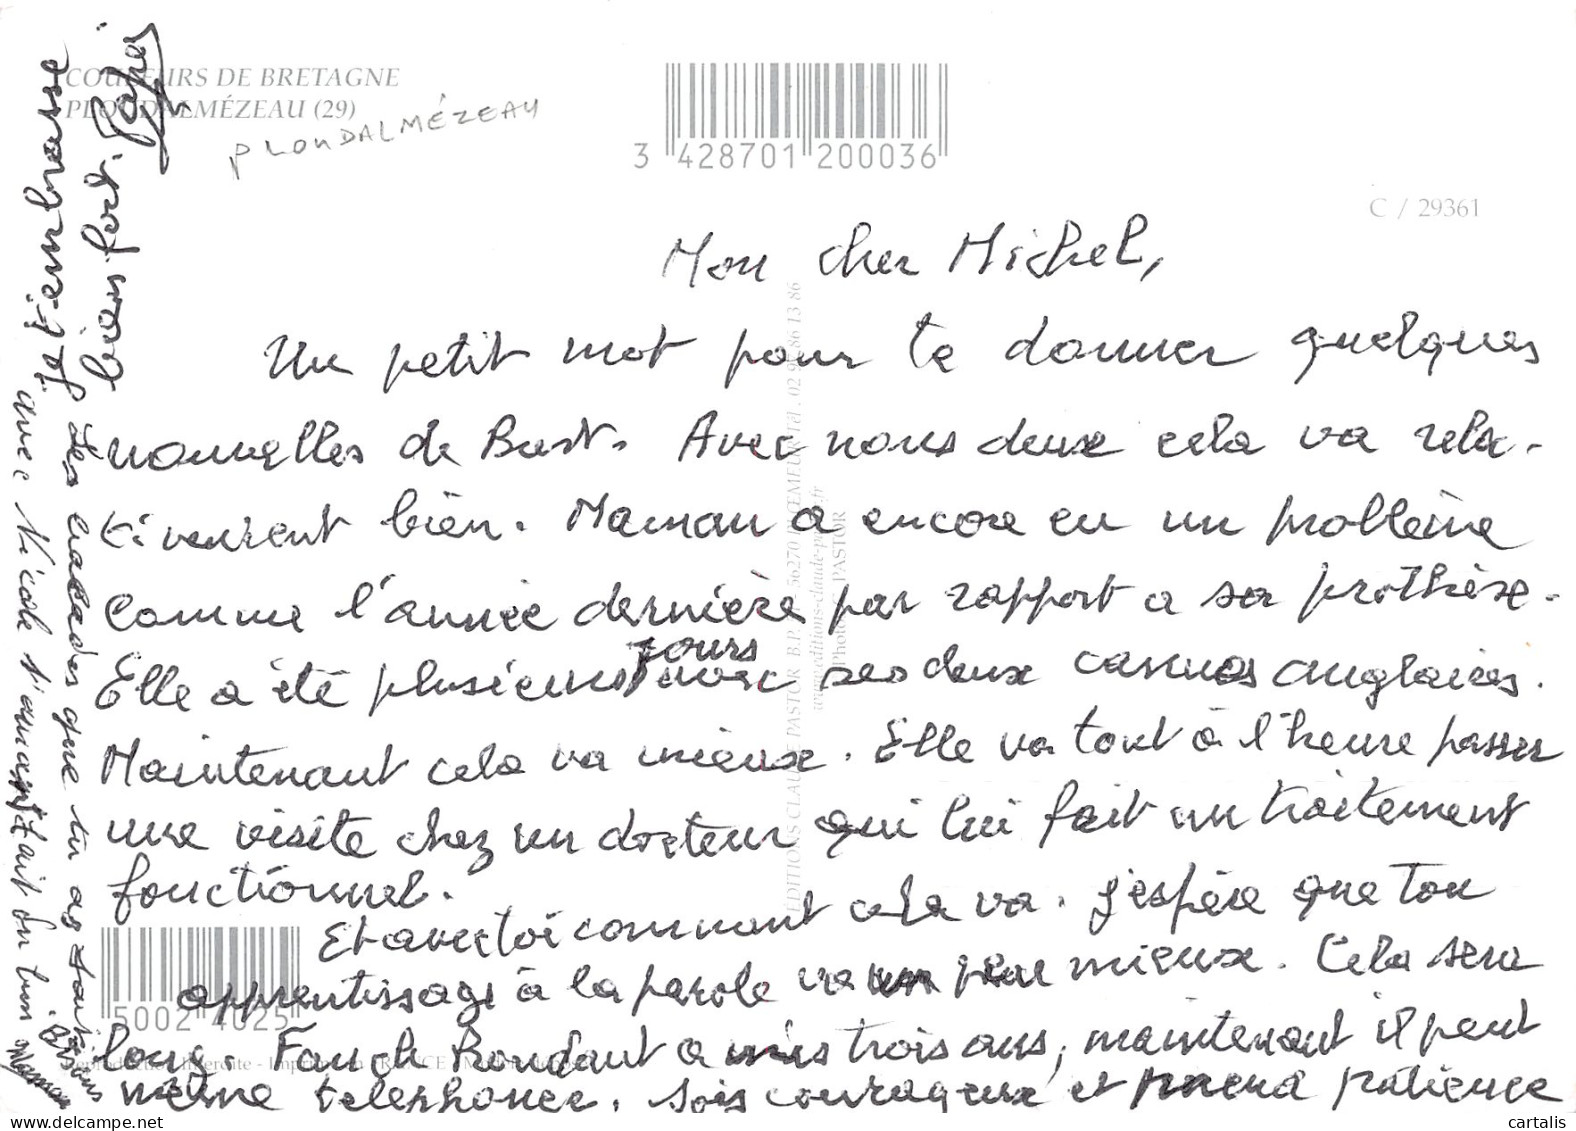 COULEURS DE BRETAGNE
PLOUDALMÉZEAU (29)
PLOUDALMÉZEAU
3 428701 200036
C / 29361
Mon cher Michel,
Un petit mot pour te donner quelques
nouvelles de Brest. Avec nous deux cela va rela-
tivement bien. Maman a encore eu un problème
comme l'année dernière par rapport a sa prothèse.
Elle a été plusieurs jours avec ses deux cannes anglaises.
Maintenant cela va mieux. Elle va tout à l'heure passer
une visite chez un docteur qui lui fait un traitement
fonctionnel.
Et avec toi comment cela va. J'espère que ton
apprentissage à la parole va un peu mieux. Cela sera
long. Fanch Boudaut a mis trois ans, maintenant il peut
même telephoner. Sois courageux et prend patience
Je t'embrasse
bien fort. Papa
des balades que tu as fait
avec Nicole t'auront fait du bien
Maman
EDITIONS CLAUDE PASTOR B.P. 56270 PLOEMEUR Tél. 02 86 13 86
www.editions-claude-pastor.fr
Photo C. PASTOR
5002 4025
Reproduction interdite - Imprimé en FRANCE
cartalis